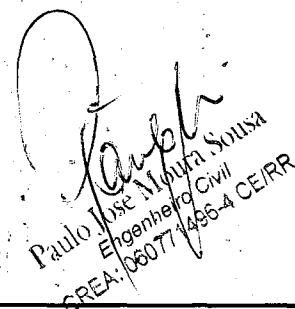 Paulo José Moura Sousa
Engenheiro Civil
CREA: 060771496-4 CE/RR